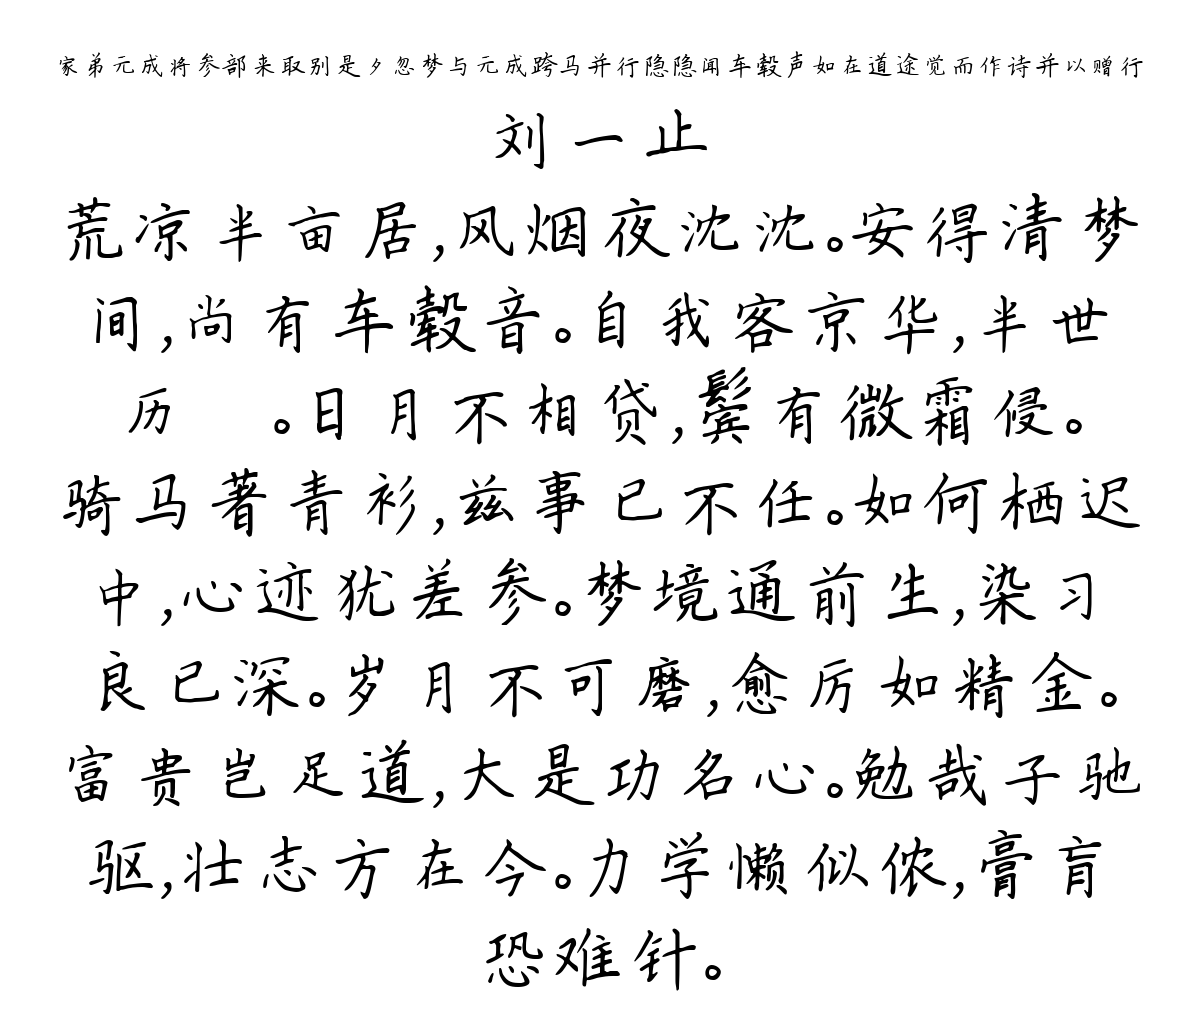 家弟元成将参部来取别是夕忽梦与元成跨马并行隐隐闻车毂声如在道途觉而作诗并以赠行
刘一止
荒凉半亩居,风烟夜沈沈。安得清梦
间,尚有车毂音。自我客京华,半世
历 。日月不相贷,鬓有微霜侵。
骑马著青衫,兹事已不任。如何栖迟
中,心迹犹差参。梦境通前生,染习
良已深。岁月不可磨,愈厉如精金。
富贵岂足道,大是功名心。勉哉子驰
驱,壮志方在今。力学懒似侬,膏肓
恐难针。